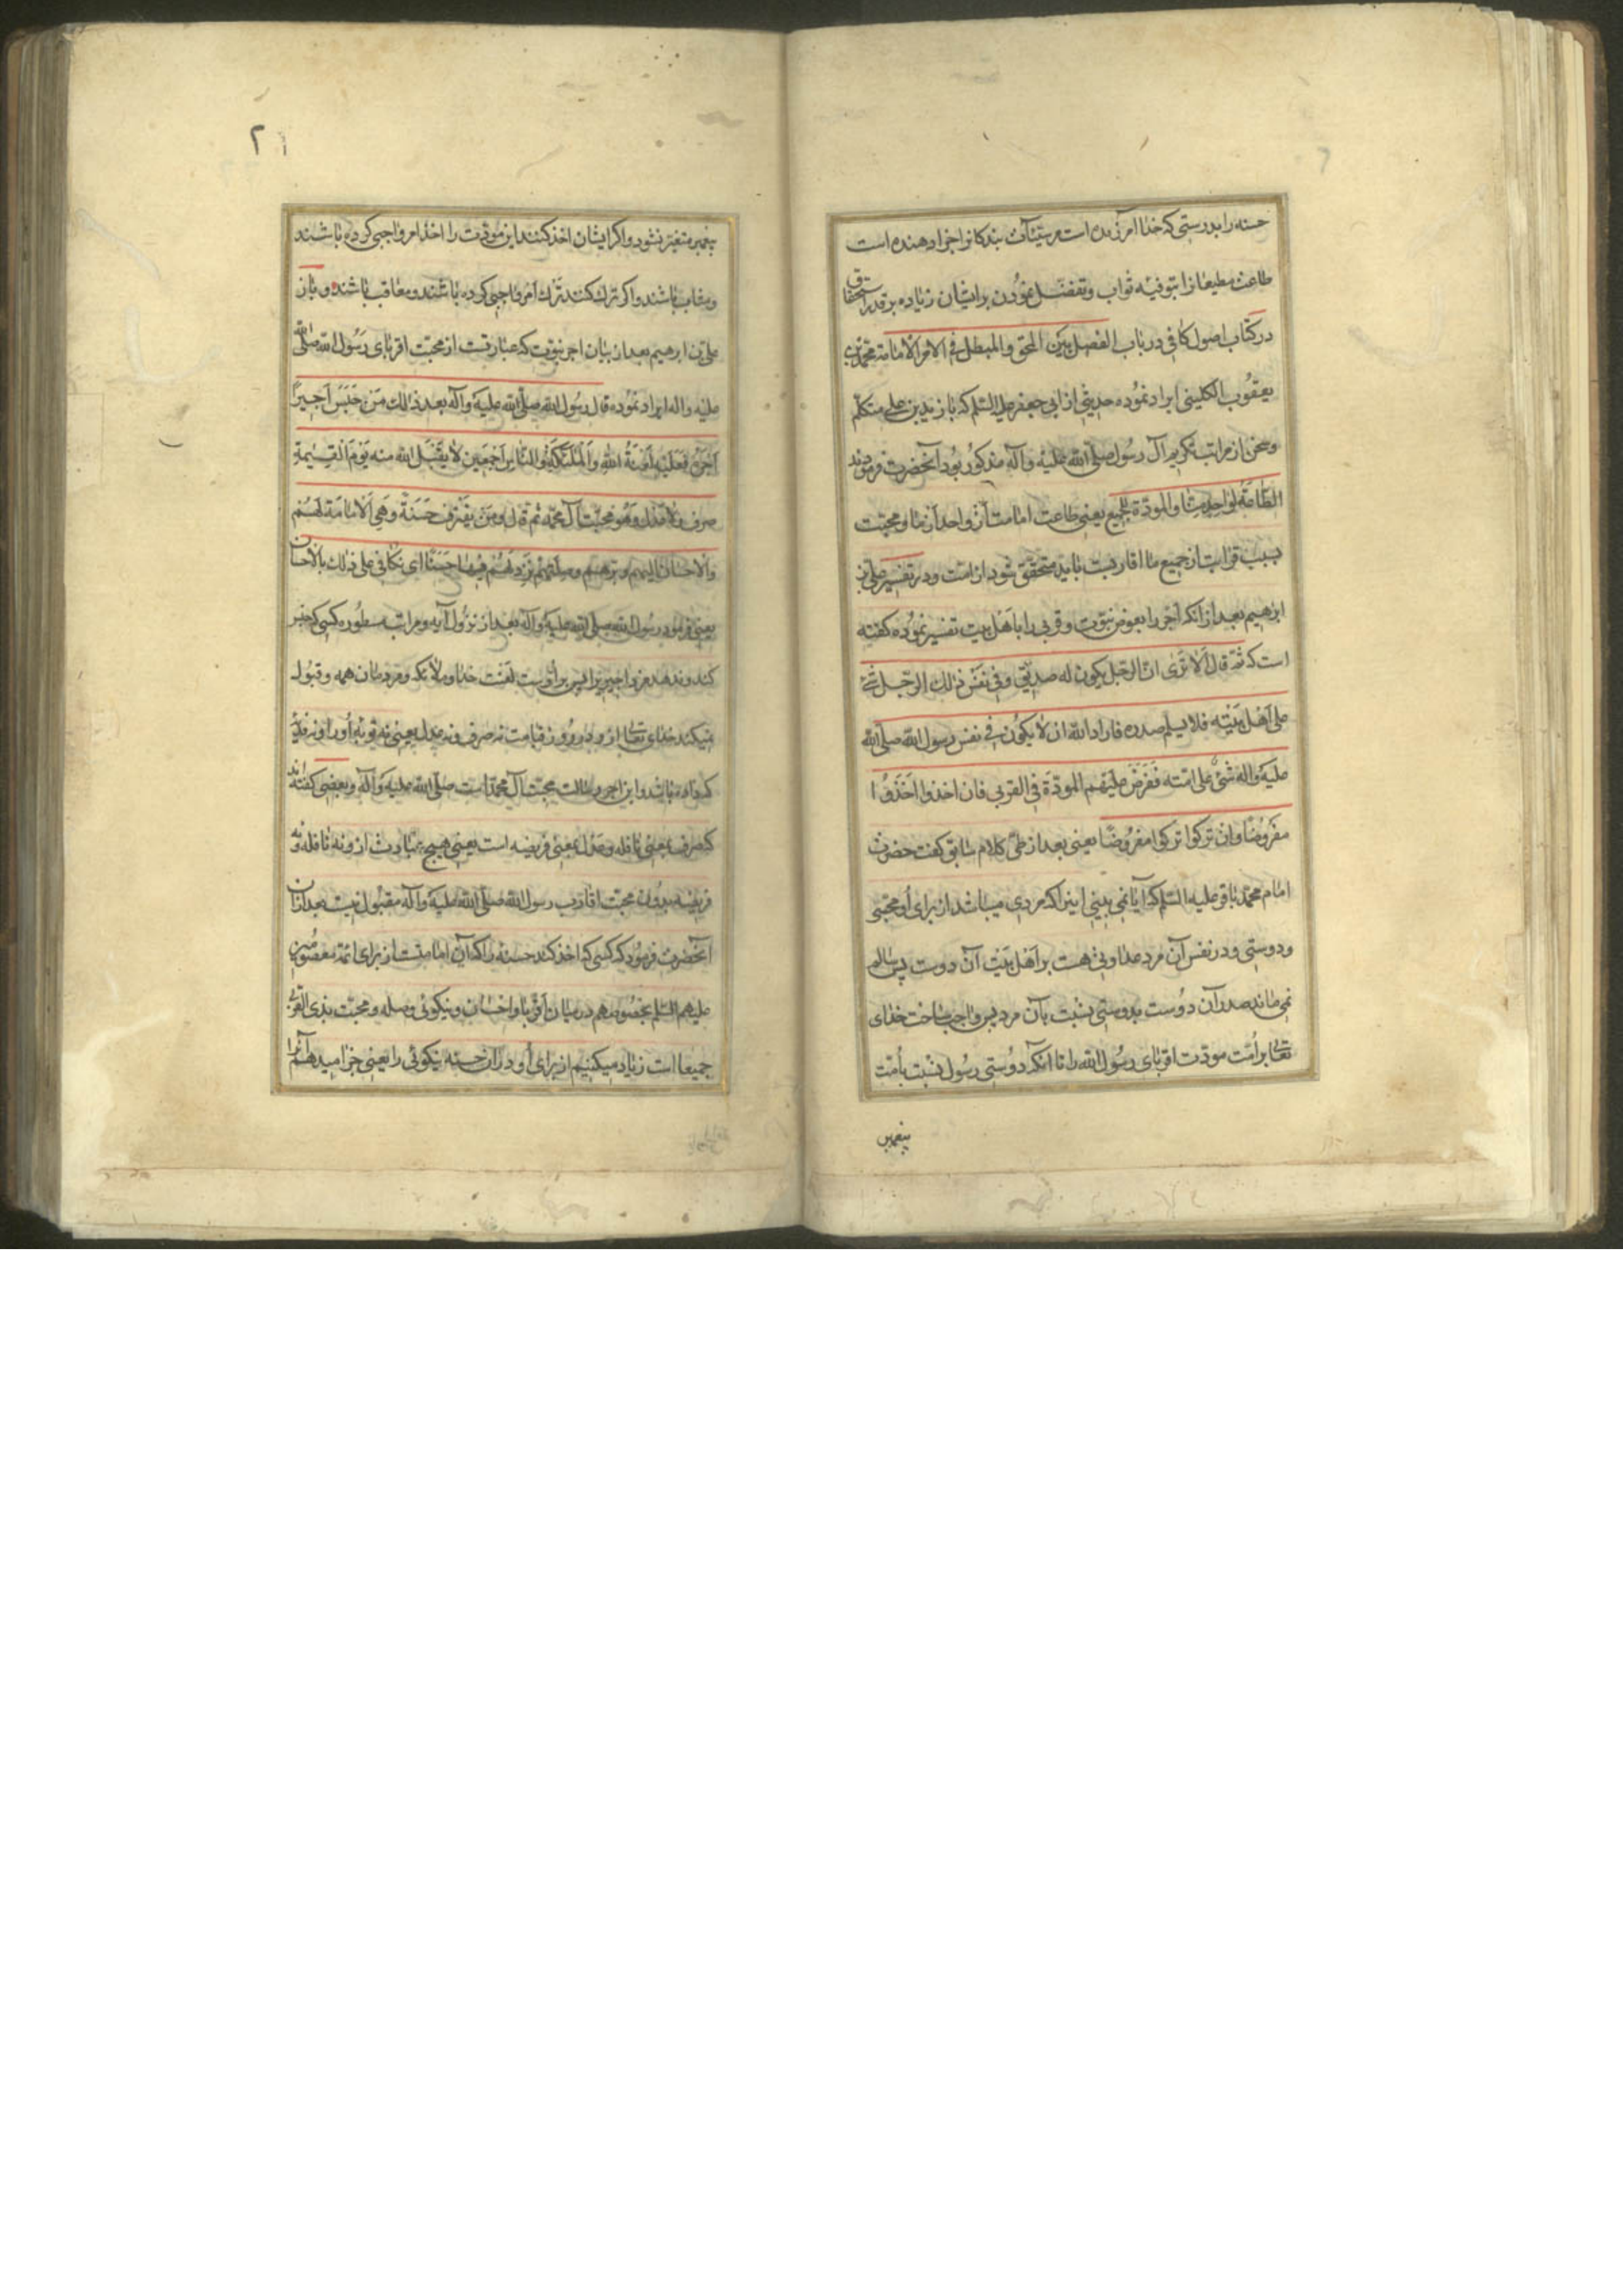 حسنه را بدرستی که خدا آمرزنده است مر سیّئات بندکانرا جزا دهنده است
طاعت مطیعانرا بتوفیه ثواب و تفضّل نمودن بر ایشان زیاده بر قدر استحقاق
در کتاب اصول کافی در باب الفصل بین المحق والمبطل فی الامر الامامة محمّد بن
یعقوب الکلینی ایراد نموده حدیثی از ابی جعفر علیه السّلم که با زید بن علی متکلّم
و سخن از مراتب تکریم آل رسول صلّی الله علیه وآله مذکور بود آنحضرت فرمودند
الطّاعة لواحد منّا والمودّة للجمیع یعنی طاعت امامت از واحد از ما و محبّت
بسبب قرابت از جمیع ما اقاربت باید متحقّق شود از امّت و در تفسیر علی بن
ابرهیم بعد از انکه اجر را بعوض نبوّت و قربی را باهل بیت تفسیر نموده کفته
است که ثمّ قال الا تری انّ الرّجل یکون له صدیق و فی نفس ذلك الرّجل شئ
علی اهل بیته فلا یسلم صدره فاراد الله ان لا یکون فی نفس رسول الله صلّی الله
علیه واله شئ علی امّته ففرض علیهم المودّة فی القربی فان اخذوا اخذوا
مفروضًا وان ترکوا ترکوا مفروضًا یعنی بعد از طیّ کلام سابق کفت حضرت
امام محمّد باقر علیه السّلم که آیا نمی بینی اینرا که مردی میباشد از برای او محبّی
و دوستی و در نفس آن مرد عداوتی هست بر اهل بیت آن دوست پس سالم
نمی ماند صدر آن دوست بدوستی نسبت بآن مرد پس واجب ساخت خدای
تعالی بر امّت مودّت اقربای رسول الله را تا آنکه دوستی رسول نسبت بامّت
پیغمبر
۲۱
پیغمبر متغیّر نشود و اکر ایشان اخذ کنند این مودّت را اخذ امر واجبی کرده باشند
و مثاب باشند و اکر ترك کنند ترك امر واجبی کرده باشند و معاقب باشند و باز
علی بن ابرهیم بعد از بیان اجر نبوّت که عبارتست از محبّت اقربای رسول الله صلّی الله
علیه واله ایراد نموده قال رسول الله صلّی الله علیه وآله بعد ذلك من حبس اجیرًا
اجره فعلیه لعنة الله والملئکة والنّاس اجمعین لا یقبل الله منه یوم القیٰمة
صرف ولا عدل وهو محبّت آل محمّد ثم قال ومن یقترف حسنة وهی الامامة لهم
والاحسان الیهم وبرّهم وصلتهم نزد لهم فیها حسنًا ای نکافی علی ذلك بالاحسان
یعنی فرمود رسول الله صلّی الله علیه وآله بعد از نزول آیه و مراتب مسطوره کسی که حبس
کند و ندهد مزد اجیر را پس بر اوست لعنت خدا و ملائکه و مردمان همه و قبول
نمیکند خدای تعالی از و در روز قیامت نه صرف و نه عدل یعنی نه توبهٔ او را و نه فدیه
که داده باشد و این اجر رسالت محبّت آل محمّد است صلّی الله علیه وآله و بعضی کفته اند
که صرف بمعنی نافله و عدل بمعنی فریضه است یعنی هیچ عبادت از و نه نافله و نه
فریضه بدون محبّت اقارب رسول الله صلّی الله علیه وآله مقبول نیست بعد از آن
آنحضرت فرمود که کسی که اخذ کند حسنه را که آن امامتست از برای ائمّه معصومین
علیهم السّلم بخصوصهم در میان اقربا و احسان و نیکوئی و صله و محبّت بذی القربی
جمیعا است زیاد میکنیم از برای او در ان حسنه نیکوئی را یعنی جزا میدهیم آنرا